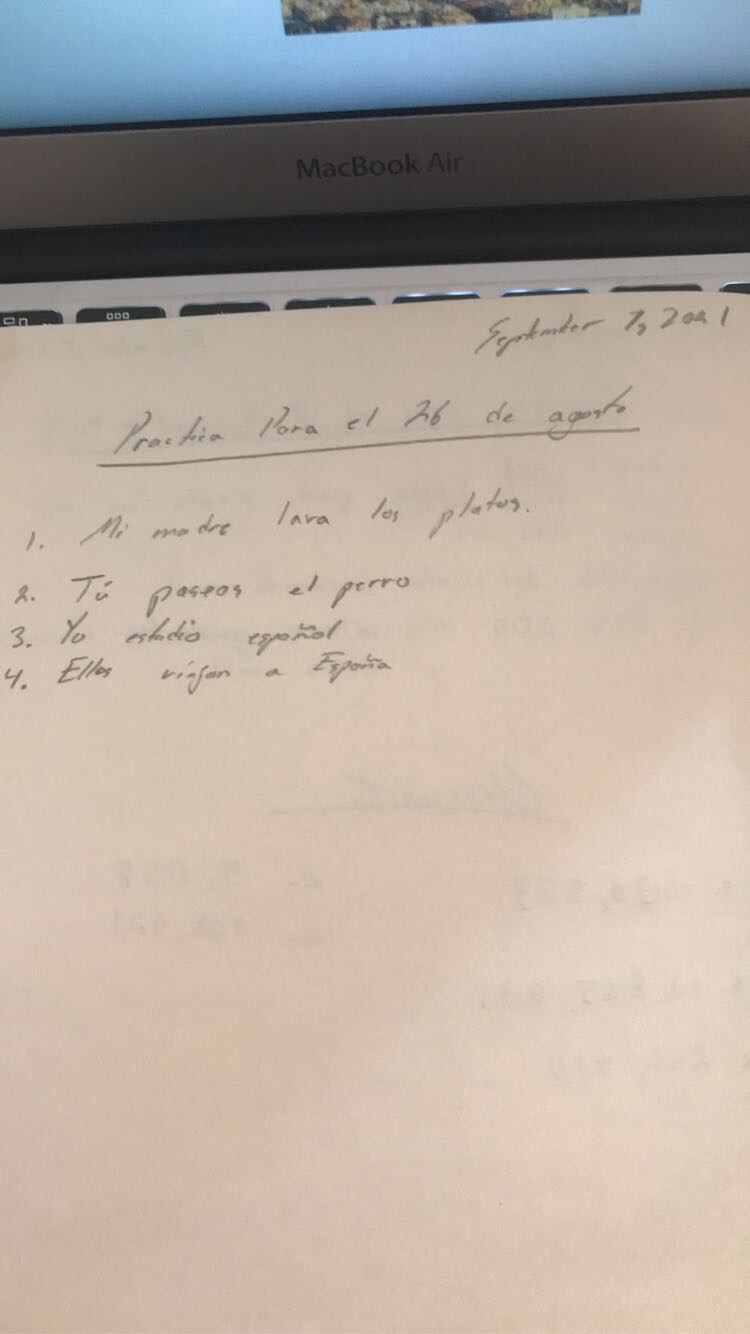 MacBook Air
September 7, 2021
Practica Para el 26 de agosto
1. Mi madre lava los platos.
2. Tú paseas el perro
3. Yo estudio español
4. Ellos viajan a España